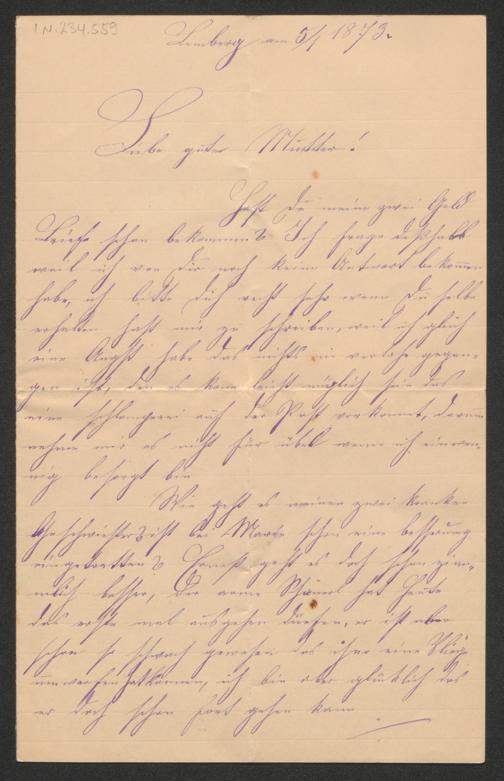 I.N. 234.559
Lemberg am 5/1 1873.
Liebe gute Mutter!
Hast Du meine zwei Geld
Briefe schon bekommen? Ich frage deßhalb
weil ich von Dir noch keine Antwort bekommen
habe, ich bitte Dich recht sehr wenn Du selbe
erhalten hast mir zu schreiben, weil ich gleich
eine Angst habe das nichts in verlohr gegan-
gen ist, den es kann leicht möglich sein das
eine schlamperei auf der Post vorkommt, darum
nehme mir es nicht für übel wenn ich einwen-
nig besorgt bin
Wie geht es meinen zwei kranken
Geschwister? ist bei Marie schon eine besserung
eingetretten? Ernst geht es doch schon ziem-
lich besser, der arme hat heute
das erste mal ausgehen dürfen, er ist aber
schon so schwach gewesen das ihn eine Fliege
umwerfen hat können, ich bin aber glücklich das
er doch schon fort gehen kann